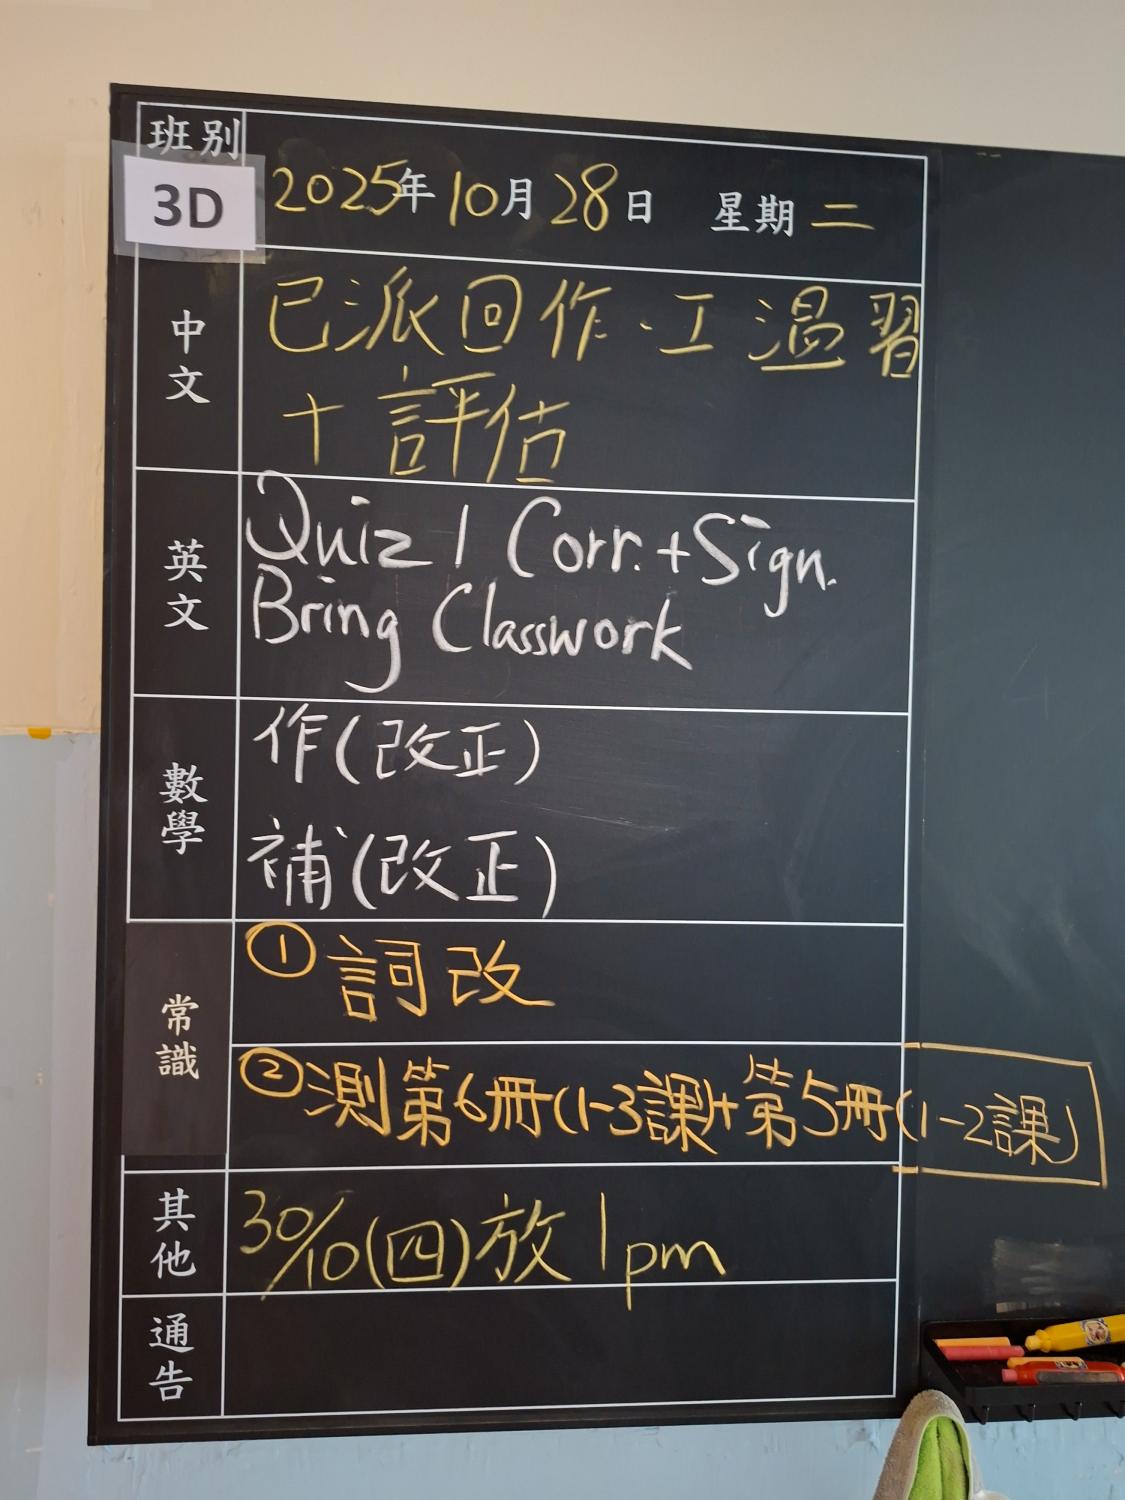 班別
3D
2025年10月28日 星期二
中文
已派回作、工 溫習
+ 評估
英文
Quiz 1 Corr. + Sign.
Bring Classwork
數學
作(改正)
補(改正)
常識
① 詞改
② 測第6冊(1-3課)+第5冊(1-2課)
其他
30/10(四)放1pm
通告